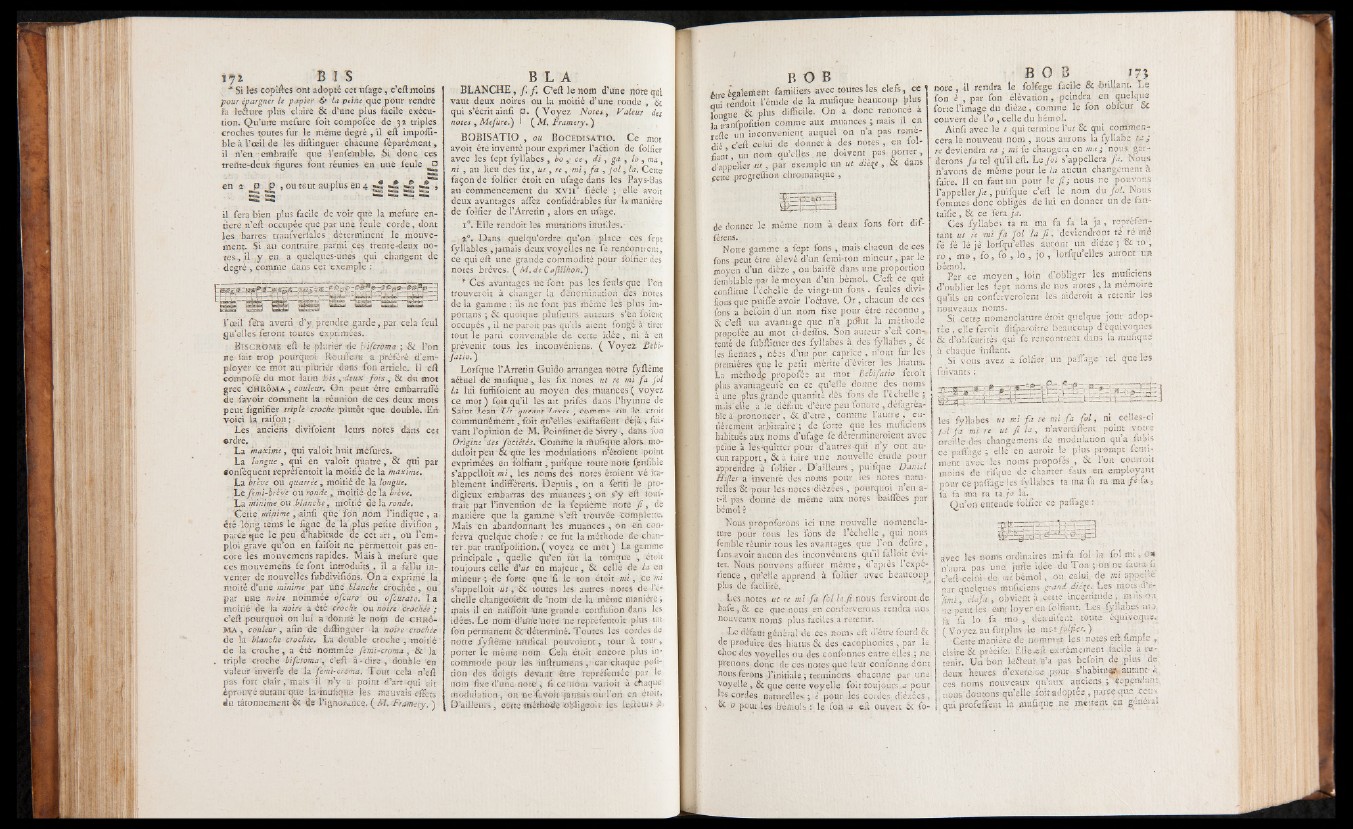 172 BIS
* Si les copistes ont adopté cet usage, c'est moins
pour épargner le papier & la peine que pour rendre
la lecture plus claire & d'une plus facile exécu-
tion. Qu'une mesure soit composée de 32 triples
croches toutes sur le même degré, il est impossi-
ble à l'œil de les distinguer chacune séparément,
il n'en embrasse que l'ensemble. Si donc ces
trente-deux figures sont réunies en une seule
en 2 , ou tout au plus en 4 ,
il sera bien plus facile de voir que la mesure en-
tière n'est occupée que par une seule corde, dont
les barres transversales déterminent le mouve-
ment. Si au contraire parmi ces trente-deux no-
tes, il y en a quelques-unes qui changent de
degré, comme dans cet exemple :
l'œil sera averti d'y prendre garde, par cela seul
qu'elles seront toutes exprimées.
BISCROME est le plurier de biscroma ; & l'on
ne sait trop pourquoi Rousseau a préféré d'em-
ployer ce mot au plurier dans son article. Il est
composé du mot latin bis, deux fois, & du mot
grec CHROMA, couleur. On peut être embarrassé
de savoir comment la réunion de ces deux mots
peut signifier triple croche plutôt que double. En
voici la raison :
Les anciens divisoient leurs notes dans cet
ordre.
La maxime, qui valoit huit mesures.
La longue, qui en valoit quatre, & qui par
conséquent représentoit la moitié de la maxime.
La brève ou quarrée, moitié de la longue.
Le semi-brève ou ronde, moitié de la brève.
La minime ou blanche, moitié de la ronde.
Cette minime, ainsi que son nom l'indique, a
été long tems le signe de la plus petite division,
parce que le peu d'habitude de cet art, ou l'em-
ploi grave qu'on en faisoit ne permettoit pas en-
core les mouvemens rapides. Mais à mesure que
ces mouvemens se sont introduits, il a fallu in-
venter de nouvelles subdivisions. On a exprimé la
moitié d'une minime par une blanche crochée, ou
par une noire nommée oscuro ou oscurato. La
moitié de la noire a été croche ou noire crochée ;
c'est pourquoi on lui a donné le nom de CHRO-
MA, couleur, afin de distinguer la noire crochée
de la blanche crochée. La double croche, moitié
de la croche, a été nommée semi-croma, & la
triple croche biscroma, c'est-à-dire, double en
valeur inverse de la semi-croma. Tout cela n'est
pas fort clair, mais il n'y a point d'art qui ait
éprouvé autant que la musique les mauvais effets
du tâtonnement & de l'ignorance. ( M. Framery. )
BLA
BLANCHE, s. f. C'est le nom d'une note qui
vaut deux noires ou la moitié d'une ronde, &
qui s'écrit ainsi (Voyez Notes, Valeur des
notes, Mesure.) ( M. Framery. )
BOBISATIO, ou BOCEDISATIO. Ce mot
avoit été inventé pour exprimer l'action de solfier
avec les sept syllabes, bo, ce, di, ga, lo, ma,
ni, au lieu des six, ut, re, mi, fa, sol, la. Cette
façon de solfier étoit en usage dans les Pays-Bas
au commencement du XVIIe siécle ; elle avoit
deux avantages assez considérables sur la manière
de solfier de l'Arretin, alors en usage.
1°. Elle rendoit les mutations inutiles.
2°. Dans quelqu'ordre qu'on place ces sept
syllabes, jamais deux voyelles ne se rencontrent,
ce qui est une grande commodité pour solfier des
notes brèves. ( M. de Castilhon. )
* Ces avantages ne sont pas les seuls que l'on
trouveroit à changer la dénomination des notes
de la gamme : ils ne sont pas même les plus im-
portans ; & quoique plusieurs auteurs s'en soient
occupés, il ne paroit pas qu'ils aient songé à tirer
tout le parti convenable de cette idée, ni à en
prévenir tous les inconvéniens. ( Voyez Bebi-
satio. )
Lorsque l'Arretin Guido arrangea notre systême
actuel de musique, les six notes ut re mi fa sol
la lui suffisoient au moyen des muances (voyez
ce mot) soit qu'il les ait prises dans l'hymne de
Saint Jean Ut queant laxis, comme on le croit
communément, soit qu'elles existassent déjà, sui-
vant l'opinion de M. Poinsinet de Sivry, dans son
Origine des sociétés. Comme la musique alors mo-
duloit peu & que les modulations n'étoient point
exprimées en solfiant, puisque toute note sensible
s'appelloit mi, les noms des notes étoient vé ita-
blement indifférens. Depuis, on a senti le pro-
digieux embarras des muances ; on s'y est sous-
trait par l'invention de la septième note si, de
manière que la gamme s'est trouvée complette.
Mais en abandonnant les muances, on en con-
serva quelque chose : ce fut la méthode de chan-
ter par transposition. (voyez ce mot) La gamme
principale, quelle qu'en fût la tonique, étoit
toujours celle d'ut en majeur, & celle de la en
mineur ; de sorte que si le ton étoit mi, ce mi
s'appelloit ut, & toutes les autres notes de l'é-
chelle changeoient de nom de la même manière ;
mais il en naissoit une grande confusion dans les
idées. Le nom d'une note ne représentoit plus un
son permanent & déterminé. Toutes les cordes de
notre systême musical pouvoient, tour à tour,
porter le même nom. Cela étoit encore plus in-
commode pour les instrumens, car chaque posi-
tion des doigts devant être représentée par le
nom fixe d'une note, si ce nom varioit à chaque
modulation, on ne savoit jamais où l'on en étoit.
D'ailleurs, cette méthode obligeoit les lecteurs à
BOB
être également familiers avec toutes les clefs, ce
qui rendoit l'étude de la musique beaucoup plus
longue & plus difficile. On a donc renoncé à
la transposition comme aux muances ; mais il en
reste un inconvénient auquel on n'a pas remé-
dié, c'est celui de donner à des notes, en sol-
fiant, un nom qu'elles ne doivent pas porter,
d'appeller ut, par exemple un ut dièze, & dans
cette progression chromatique,
de donner le même nom à deux sons fort dif-
férens.
Notre gamme a sept sons, mais chacun de ces
sons peut être élevé d'un semi-ton mineur, par le
moyen d'un dièze, ou baissé dans une proportion
semblable par le moyen d'un bémol. C'est ce qui
constitue l'échelle de vingt-un sons, seules divi-
sions que puisse avoir l'octave. Or, chacun de ces
sons a besoin d'un nom fixe pour être reconnu,
& c'est un avantage que n'a point la méthode
proposée au mot ci-dessus. Son auteur s'est con-
tenté de substituer des syllabes à des syllabes, &
les siennes, nées d'un pur caprice, n'ont sur les
premières que le petit mérite d'éviter les hiatus.
La méthode proposée au mot Bebisatio seroit
plus avantageuse en ce qu'elle donne des noms
à une plus grande quantité des sons de l'échelle ;
mais elle a le défaut d'être peu sonore, désagréa-
ble à prononcer, & d'être, comme l'autre, en-
tièrement arbitraire ; de sorte que les musiciens
habitués aux noms d'usage se détermineroient avec
peine à les quitter pour d'autres qui n'y ont au-
cun rapport, & à faire une nouvelle étude pour
apprendre à solfier. D'ailleurs, puisque Daniel
Hitler a inventé des noms pour les notes natu-
relles & pour les notes diézées, pourquoi n'en a-
t-il pas donné de même aux notes baissées par
bémol ?
Nous proposerons ici une nouvelle nomencla-
ture pour tous les sons de l'échelle, qui nous
semble réunir tous les avantages que l'on desire,
sans avoir aucun des inconvéniens qu'il falloit évi-
ter. Nous pouvons assurer même, d'après l'expé-
rience, qu'elle apprend à solfier avec beaucoup
plus de facilité.
Les notes ut re mi fa sol la si nous serviront de
base, & ce que nous en conserverons rendra nos
nouveaux noms plus faciles à retenir.
Le défaut général de ces noms est d'être sourd &
de produire des hiatus & des cacophonies, par le
choc des voyelles ou des consonnes entre elles ; ne
prenons donc de ces notes que leur consonne dont
nous ferons l'initiale ; terminons chacune par une
voyelle, & que cette voyelle soit toujours a pour
les cordes naturelles ; é pour les cordes diézées,
& o pour les bémols : le son a est ouvert & so-
BOB 173
nore, il rendra le solfège facile & brillant. Le
son é, par son élévation, peindra en quelque
sorte l'image du dièze, comme le son obscur &
couvert de l'o, celle du bémol.
Ainsi avec le t qui termine l'ut & qui commen-
cera le nouveau nom, nous aurons la syllabe ta ;
re deviendra ra ; mi se changera en ma ; nous gar-
derons fa tel qu'il est. Le sol s'appellera sa. Nous
n'avons de même pour le la aucun changement à
faire. Il en faut un pour le si ; nous ne pouvons
l'appeller sa, puisque c'est le nom du sol. Nous
sommes donc obligés de lui en donner un de fan-
taisie, & ce sera ja.
Ces syllabes ta ra ma fa sa la ja, représen-
tant ut re mi fa sol la si, deviendront té ré mé
fé sé lé jé lorsqu'elles auront un dièze ; & to,
ro, mo, fo, so, lo, jo, lorsqu'elles auront un
bémol.
Par ce moyen, loin d'obliger les musiciens
d'oublier les sept noms de nos notes, la mémoire
qu'ils en conserveroient les aideroit à retenir les
nouveaux noms.
Si cette nomenclature étoit quelque jour adop-
tée, elle feroit disparoître beaucoup d'équivoques
& d'obscurités qui se rencontrent dans la musique
à chaque instant.
Si vous avez à solfier un passage tel que les
suivans :
les syllabes ut mi fa re mi fa sol, ni celles-ci
sol fa mi re ut si la, n'avertissent point votre
oreille des changemens de modulation qu'a subis
ce passage ; elle en auroit le plus prompt senti-
ment avec les noms proposés, & l'on courroit
moins de risque de chanter faux en employant
pour ce passage les syllabes ta ma fa ra ma fé sa,
sa fa ma ra ta jo la.
Qu'on entende solfier ce passage :
avec les noms ordinaires mi fa sol la sol mi, on
n'aura pas une juste idée du Ton ; on ne saura si
c'est celui de mi bémol, ou celui de mi appellé
par quelques musiciens grand dièze. Les mots d'e-
simi, elafa, obvient à cette incertitude, mais on
ne peut les employer en solfiant. Les syllabes mo
fa so lo so mo, detruisent toute équivoque.
(Voyez au surplus le mot solfier.)
Cette manière de nommer les notes est simple,
claire & précise. Elle est extrêmement facile à re-
tenir. Un bon lecteur n'a pas besoin de plus de
deux heures d'exercice pour s'habituer autant à
ces noms nouveaux qu'aux anciens ; cependant
nous doutons qu'elle soit adoptée, parce que ceux
qui professent la musique ne mettent en général